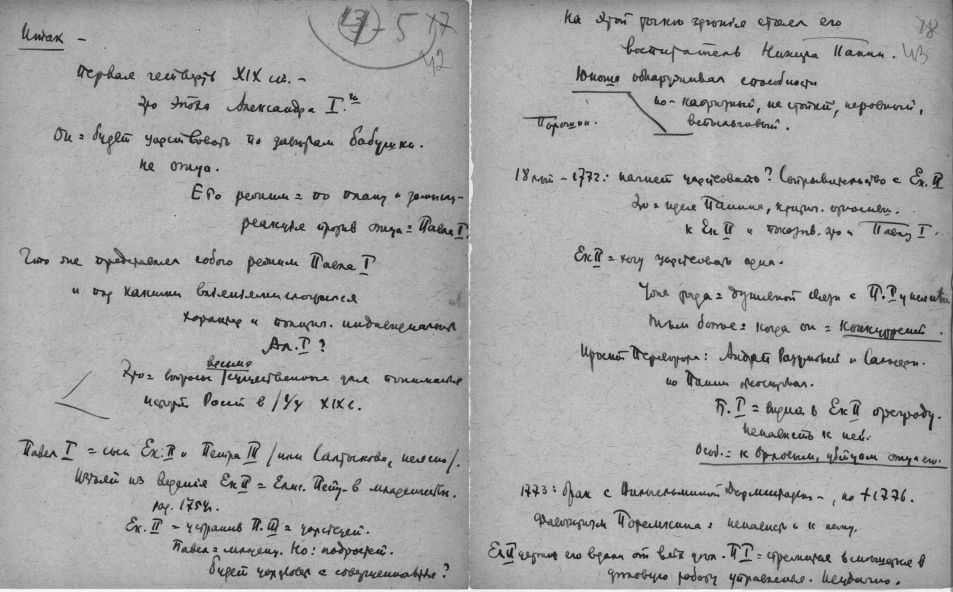 17-5 17
42
Итак –
Первая четверть XIX ст. –
это эпоха Александра I.го
Он = будет царствовать по заветам бабушки.
не отца.
Его режим = по плану и замыслу –
реакция против отца = Павла I
Что же представлял собою режим Павла I
и под какими влияниями сложился
характер и полит. индивидуальность
Ал. I ?
весьма
Это = вопросы /существенные для понимания
истории России в I ч/у XIX с.
Павел I = сын Ек. II и Петра III /или Салтыкова, неясно/.
Изъят из ведения Ек II = Елис. Петр-ы в младенчестве.
род. 1754 г.
Ек. II = устранив П. III = царицей.
Павел = младенец. Но: подростает.
будет царствовать с совершеннолетия ?
18
43
На этой точке зрения стоял его
воспитатель Никита Панин.
Юноша обнаруживал способности
но – капризный, не стойкий, неровный,
вспыльчивый.
Порошин.
18 лет – 1772: начнет царствовать? Соправительство с Ек. II
Это = идея Панина, критич. относивш.
к Ек II и показыв. это и Павлу I.
Ек II = хочу царствовать одна.
рода = душевной связи с П. I у нея нет
Тем более = когда он = конкурент.
Проект переворота: Андрей Разумовский и
но Панин
П. I = видит в Ек II преграду.
ненависть к ней.
Особ. = к Орловым, убийцам отца его.
1773: брак с Вильгельминой Дармштадтск–, но † 1776.
Фаворитизм Потемкина = ненависть к нему.
Ек II держит его вдали от всех дел. П I = стремится вмешаться в
деловую работу управления. Неудачно.